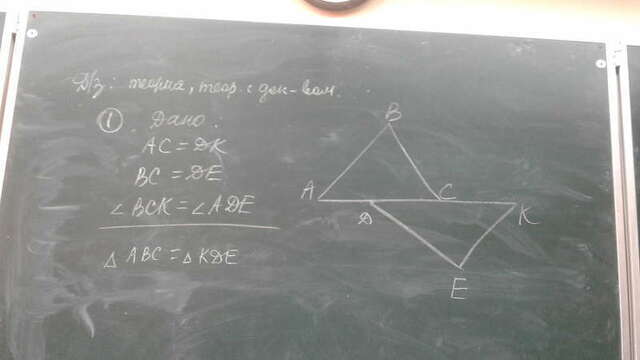 Д/з: теория, теор. с док-вом.
① Дано:
AC = DK
BC = DE
∠BCK = ∠ADE
△ABC = △KDE
B
A
C
D
K
E